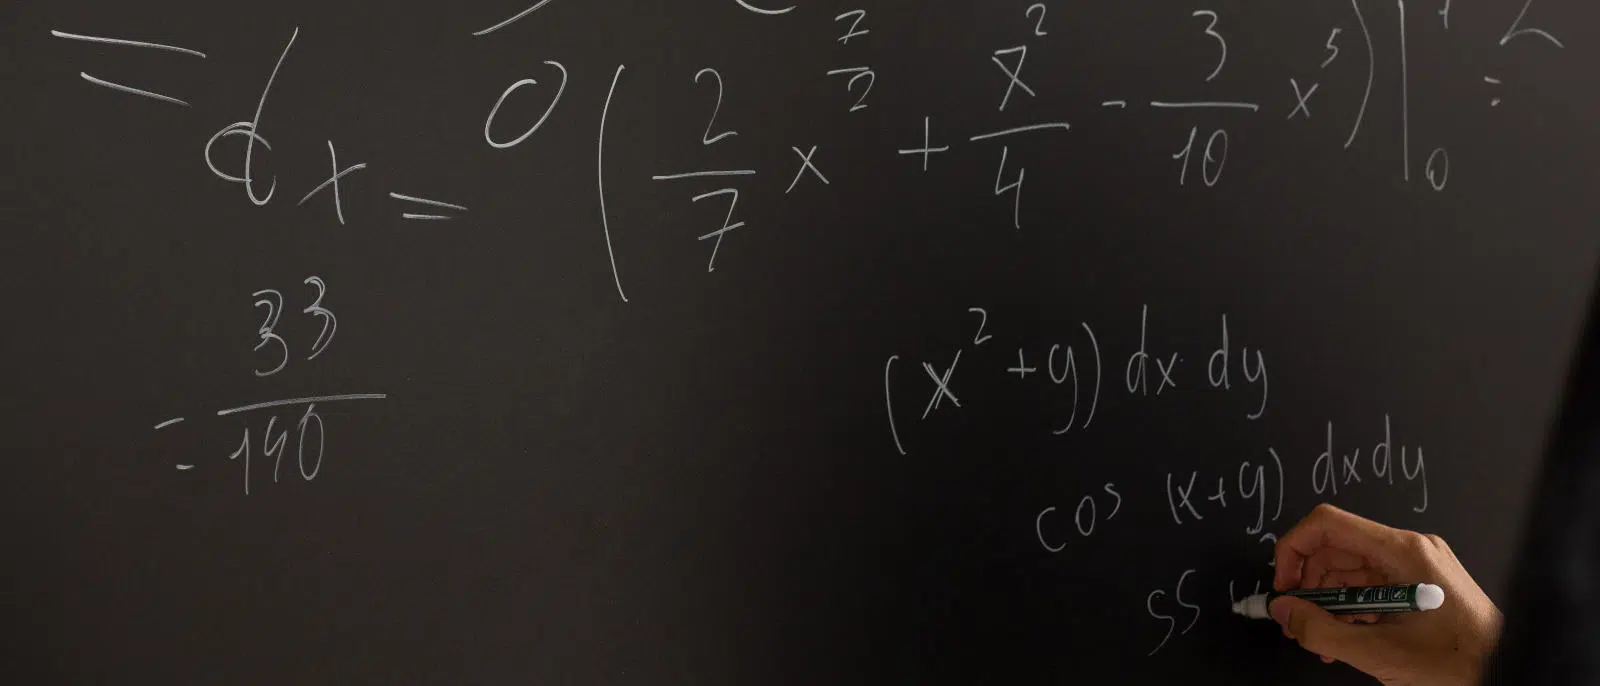 = dx = 0 ( 2/7 x^(7/2) + x^2/4 - 3/10 x^5 ) |_0 =
= 33/140
(x^2 + y) dx dy
cos (x+y) dxdy
SS